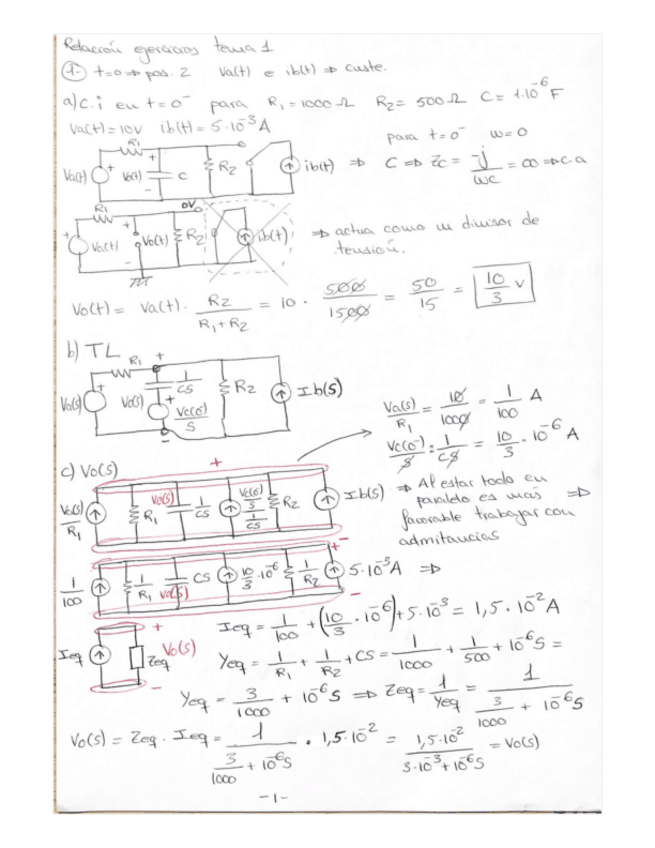 Relación ejercicios tema 1
1- t=0 ⇒ pos. 2 Va(t) e ib(t) ⇒ custe.
a) c.i en t=0⁻ para R₁=1000Ω R₂=500Ω C=1·10⁻⁶F
Va(t)=10V ib(t)=5·10⁻³A
para t=0⁻ w=0
R₁ Va(t) + Vo(t) - C R₂ ib(t) ⇒ C ⇒ Zc = -j/wC = ∞ ⇒ c.a
R₁ + Va(t) Vo(t) - 0V R₂ ib(t) ⇒ actua como un divisor de
tensión.
Vo(t) = Va(t) · R₂/(R₁+R₂) = 10 · 500/1500 = 50/15 = 10/3 V
b) TL
R₁ + Va(s) Vo(s) 1/CS Vc(0⁻)/S - R₂ Ib(s)
Va(s)/R₁ = 10/1000 = 1/100 A
Vc(0⁻)/S : 1/CS = 10/3 · 10⁻⁶ A
c) Vo(s)
Va(s)/R₁ R₁ Vo(s) 1/CS Vc(0⁻)/S / 1/CS R₂ Ib(s) + -
⇒ Al estar todo en
paralelo es más ⇒
favorable trabajar con
admitancias
1/100 1/R₁ Vo(s) CS 10/3·10⁻⁶ 1/R₂ 5·10⁻³A ⇒
Ieq = 1/100 + (10/3 · 10⁻⁶) + 5·10⁻³ = 1,5·10⁻² A
Ieq + Vo(s) - Zeq
Yeq = 1/R₁ + 1/R₂ + CS = 1/1000 + 1/500 + 10⁻⁶S =
Yeq = 3/1000 + 10⁻⁶S ⇒ Zeq = 1/Yeq = 1/(3/1000 + 10⁻⁶S)
Vo(s) = Zeq · Ieq = 1/(3/1000 + 10⁻⁶S) · 1,5·10⁻² = 1,5·10⁻²/(3·10⁻³+10⁻⁶S) = Vo(s)
-1-